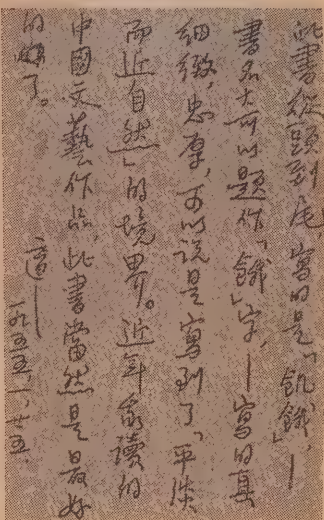 此書從頭到尾寫的是「飢餓」,—
書名大可以題作「餓」字,—寫的真
細緻,忠厚,可以說是寫到了「平淡
而近自然」的境界。近年我讀的
中國文藝作品,此書當然是最好
的了。
適
一九五五,一,廿五.